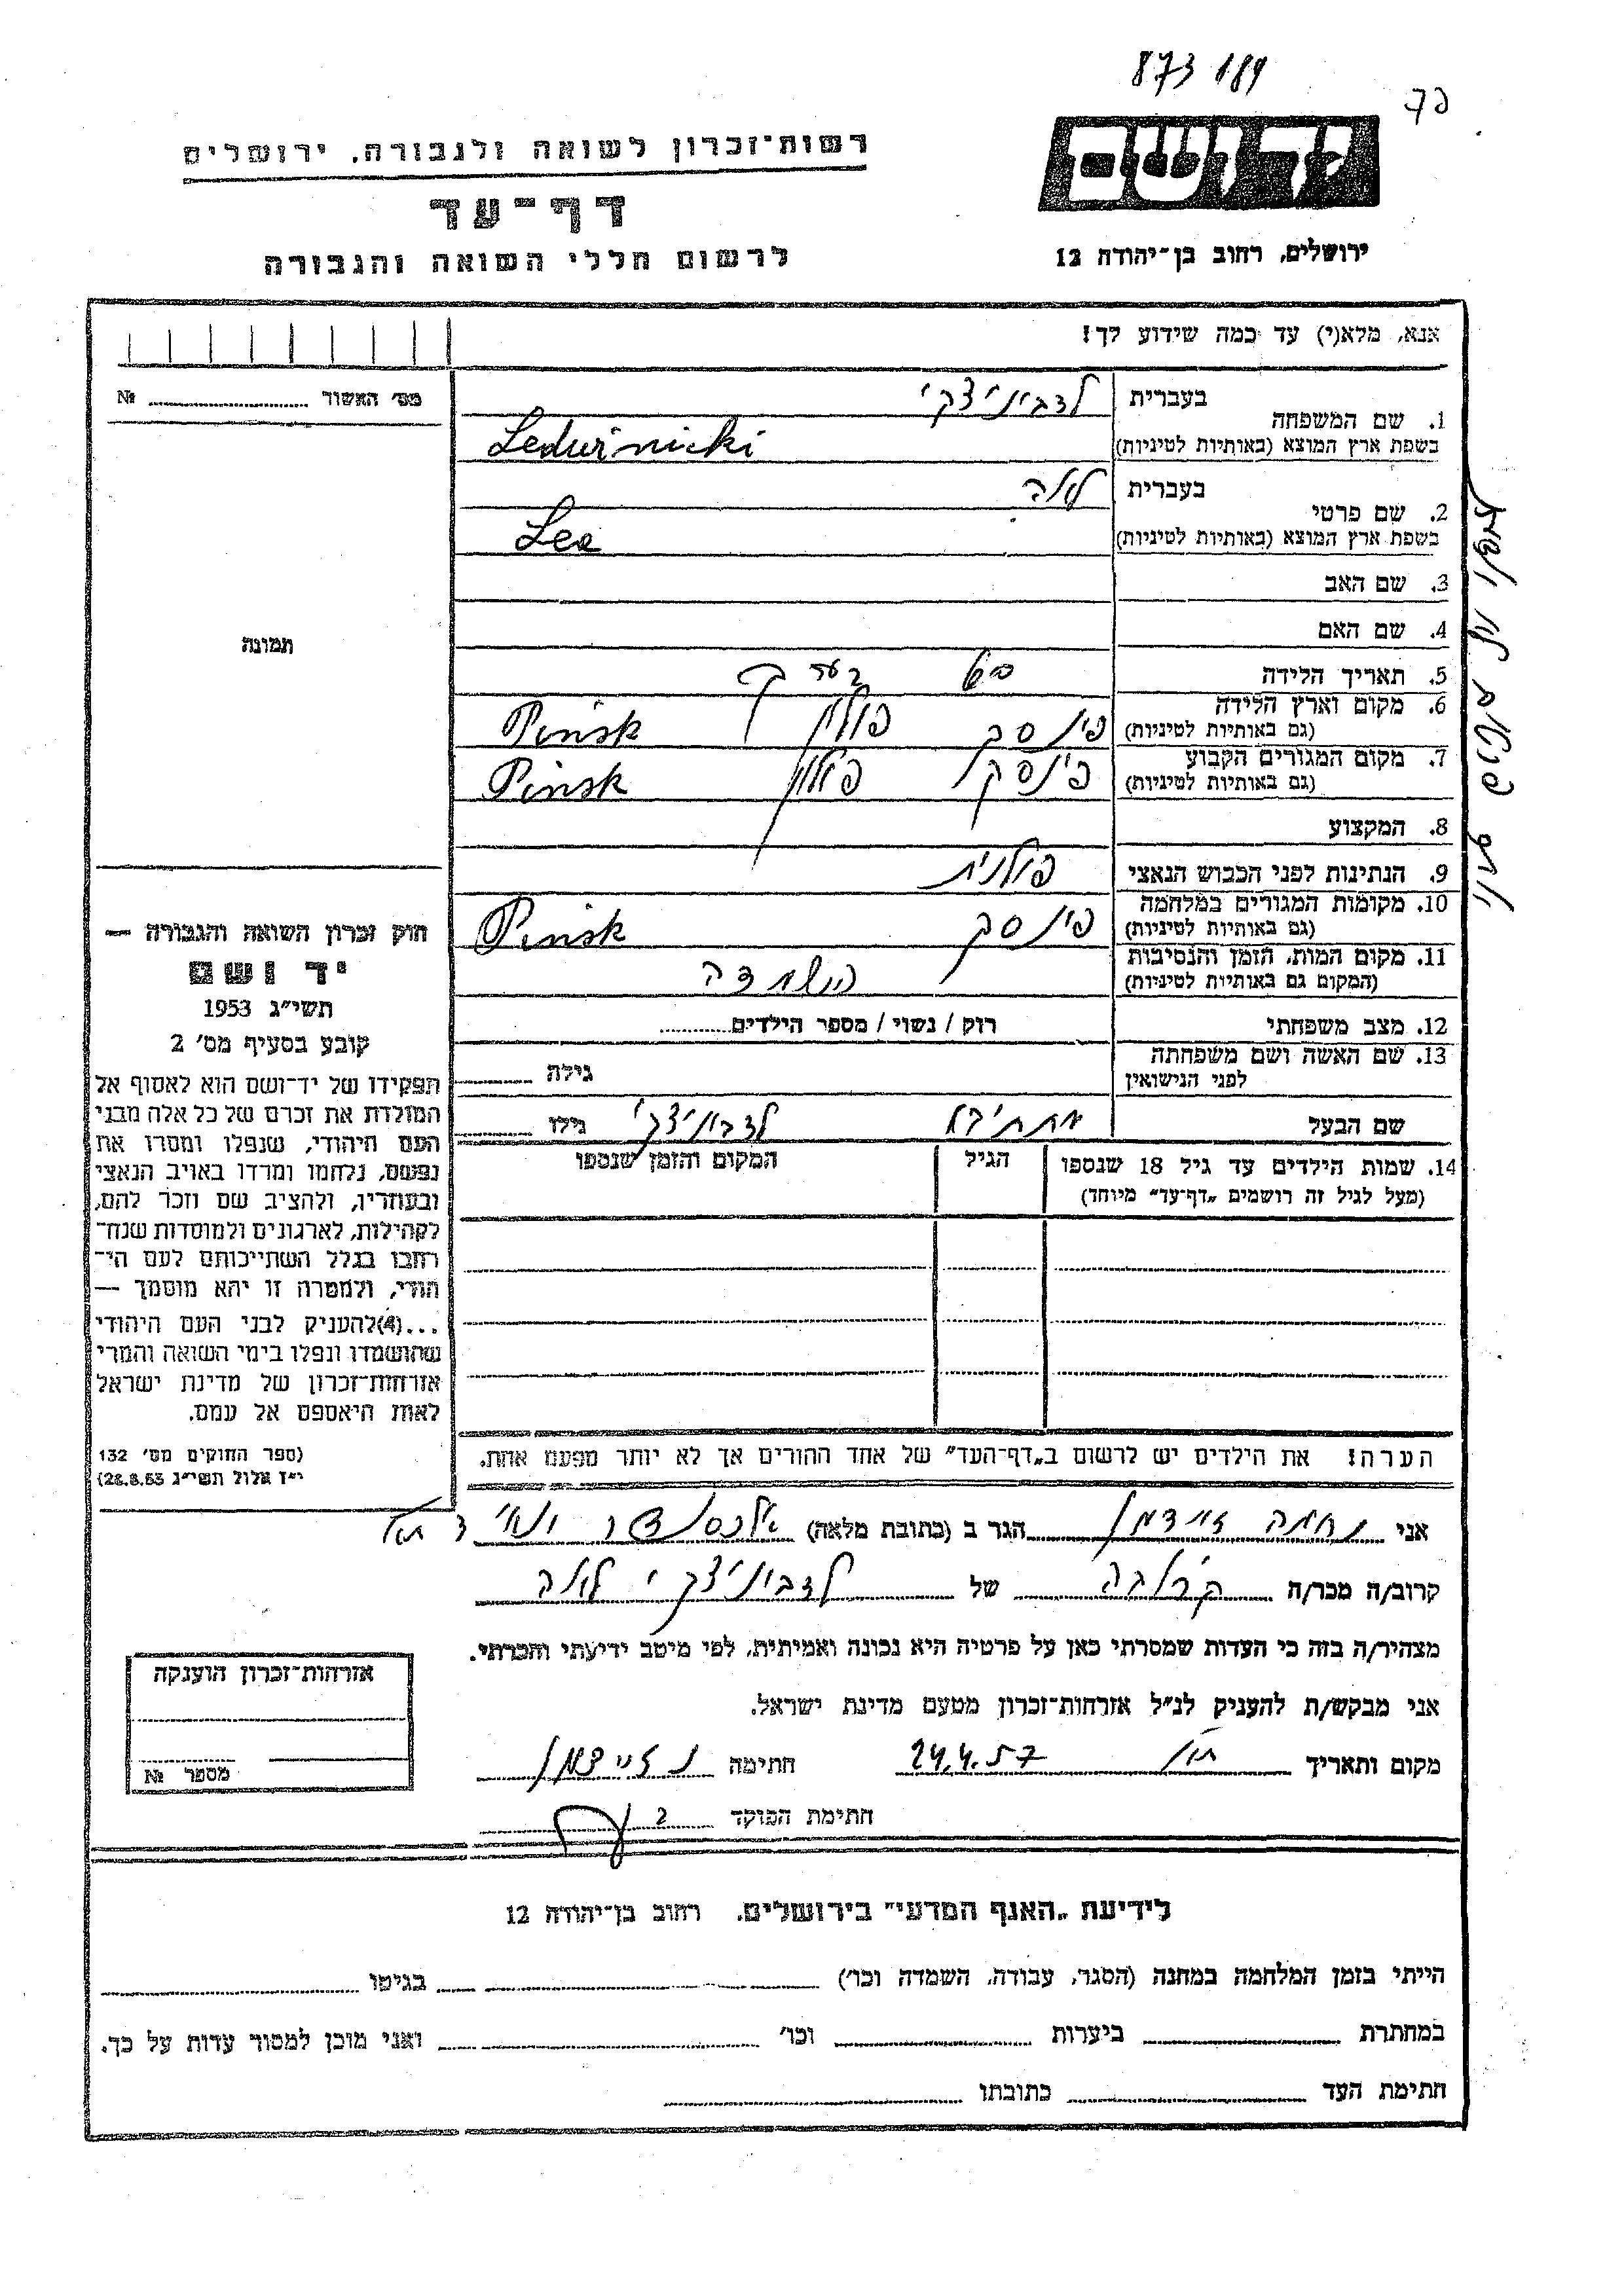 873 189
רשות־זכרון לשואה ולגבורה, ירושלים
דף־עד
לרשום חללי השואה והגבורה
יד ושם
ירושלים, רחוב בן־יהודה 12
אנא, מלא(י) עד כמה שידוע לך!
מס' האשור № ........
תמונה
1. שם המשפחה
בעברית לדביניצקי
בשפת ארץ המוצא (באותיות לטיניות) Ledwinicki
2. שם פרטי
בעברית לאה
בשפת ארץ המוצא (באותיות לטיניות) Lea
3. שם האב
4. שם האם
5. תאריך הלידה
6. מקום וארץ הלידה
(גם באותיות לטיניות) פינסק פולין Pinsk
7. מקום המגורים הקבוע
(גם באותיות לטיניות) פינסק פולין Pinsk
8. המקצוע
9. הנתינות לפני הכבוש הנאצי פולנית
10. מקומות המגורים במלחמה
(גם באותיות לטיניות) פינסק Pinsk
11. מקום המות, הזמן והנסיבות
(המקום גם באותיות לטיניות) הושמדה
12. מצב משפחתי רוק / נשוי / מספר הילדים........
13. שם האשה ושם משפחתה
לפני הנישואין גילה ........
שם הבעל לדביניצקי גילו ........
14. שמות הילדים עד גיל 18 שנספו הגיל המקום והזמן שנספו
(מעל לגיל זה רושמים „דף־עד״ מיוחד)
חוק זכרון השואה והגבורה —
יד ושם
תשי״ג 1953
קובע בסעיף מס' 2
תפקידו של יד־ושם הוא לאסוף אל
המולדת את זכרם של כל אלה מבני
העם היהודי, שנפלו ומסרו את
נפשם, נלחמו ומרדו באויב הנאצי
ובעוזריו, ולהציב שם וזכר להם,
לקהילות, לארגונים ולמוסדות שנח־
רחבו בגלל השתייכותם לעם הי־
הודי, ולמטרה זו יהא מוסמך —
...(4)להעניק לבני העם היהודי
שהושמדו ונפלו בימי השואה והמרי
אזרחות־זכרון של מדינת ישראל
לאות היאספם אל עמם.
(ספר החוקים מס' 132
י״ז אלול תשי״ג 28.8.53)
הערה! את הילדים יש לרשום ב„דף־העד״ של אחד ההורים אך לא יותר מפעם אחת.
אני נחמה זיידמן הגר ב (כתובת מלאה)
קרוב/ה מכר/ה קרובה של לדביניצקי לאה
מצהיר/ה בזה כי העדות שמסרתי כאן על פרטיה היא נכונה ואמיתית, לפי מיטב ידיעתי והכרתי.
אני מבקש/ת להעניק לנ״ל אזרחות־זכרון מטעם מדינת ישראל.
מקום ותאריך 24.4.57 חתימה נ זיידמן
חתימת הפוקד
אזרחות־זכרון הוענקה
מספר №
לידיעת „האגף המדעי״ בירושלים, רחוב בן־יהודה 12
הייתי בזמן המלחמה במחנה (הסגר, עבודה, השמדה וכו') ........ בגיטו ........
במחתרת ........ ביערות ........ וכו' ........ ואני מוכן למסור עדות על כך.
חתימת העד ........ כתובתו ........